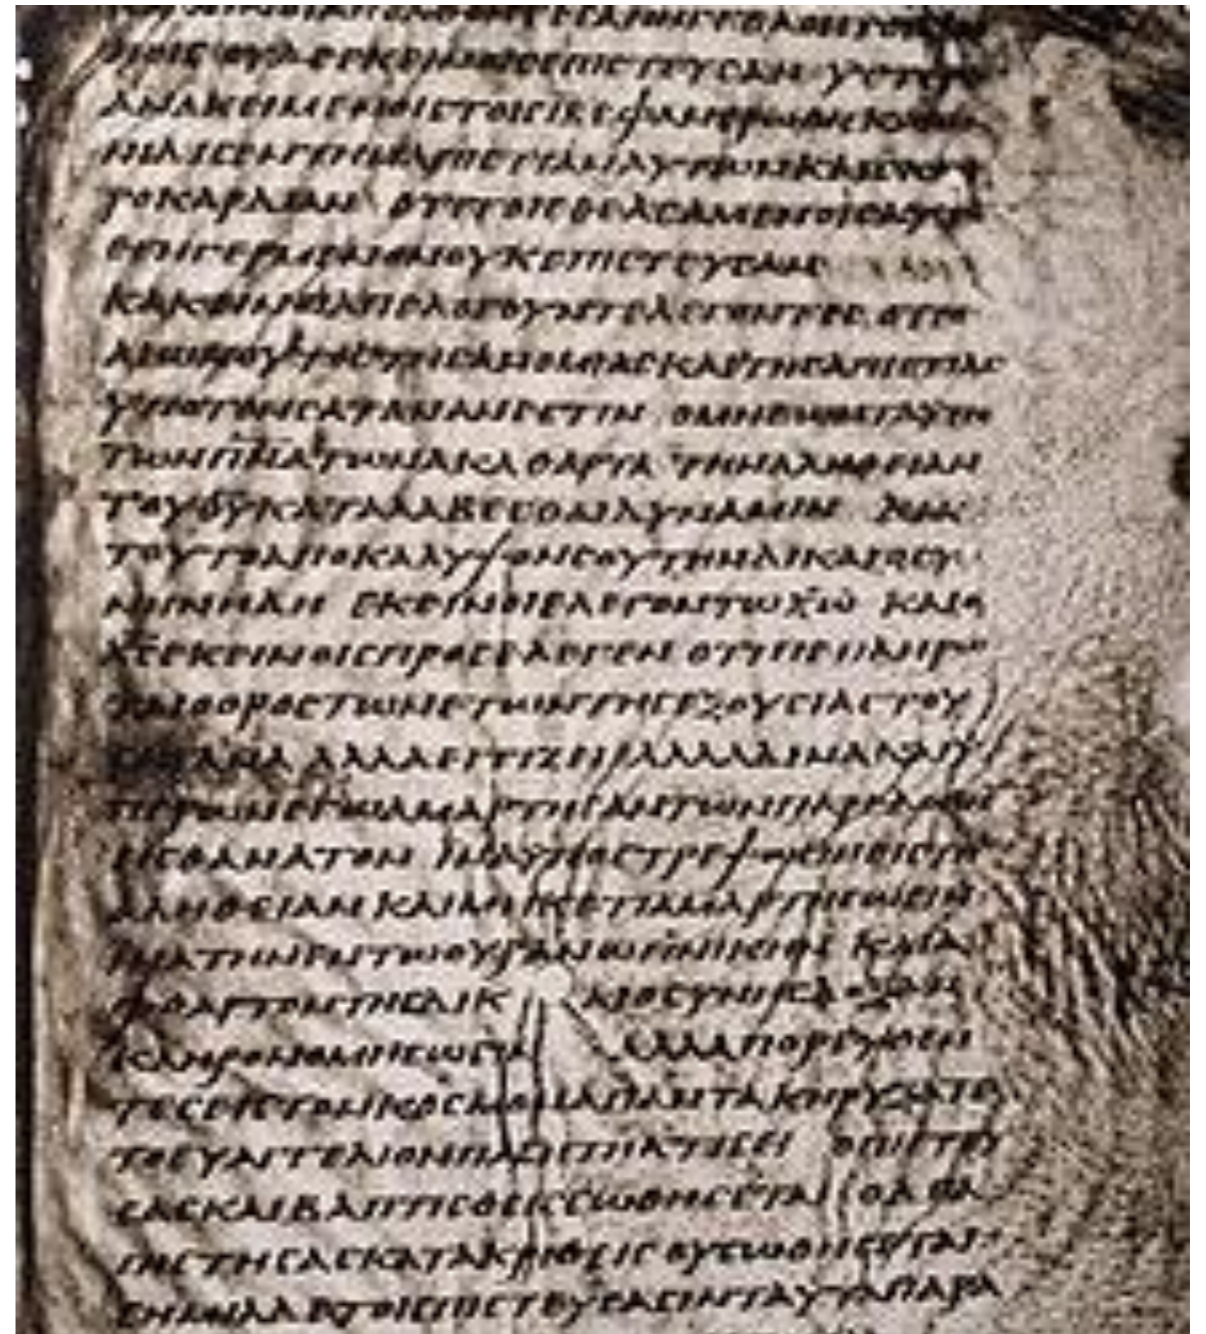 ΑΝΑΚΕΙΜΕΝΟΙΣ ΤΟΙΣ ΕΦΑΝΕΡΩΘΗ
ΤΗΝ ΑΠΙΣΤΙΑΝ ΑΥΤΩΝ ΚΑΙ
ΚΑΡΔΙΑΝ ΟΤΙ ΤΟΙΣ ΘΕΑΣΑΜΕΝΟΙΣ ΑΥΤΟ
ΕΓΗΓΕΡΜΕΝΟΝ ΟΥΚ ΕΠΙΣΤΕΥΣΑΝ
ΚΑΚΕΙΝΟΙ ΑΠΕΛΟΓΟΥΝΤΕ ΛΕΓΟΝΤΕΣ ΟΤΙ Ο
ΑΙΩΝ ΟΥΤΟΣ ΤΗΣ ΑΝΟΜΙΑΣ ΚΑΙ ΤΗΣ ΑΠΙΣΤΙΑΣ
ΥΠΟ ΤΟΝ ΣΑΤΑΝΑΝ ΕΣΤΙΝ Ο ΜΗ ΕΩΝ ΤΑ ΥΠΟ
ΤΩΝ ΠΝΑΤΩΝ ΑΚΑΘΑΡΤΑ ΤΗΝ ΑΛΗΘΕΙΑΝ
ΤΟΥ ΘΥ ΚΑΤΑΛΑΒΕΣΘΑΙ ΔΥΝΑΜΙΝ ΔΙΑ
ΤΟΥΤΟ ΑΠΟΚΑΛΥΨΟΝ ΣΟΥ ΤΗΝ ΔΙΚΑΙΟΣΥ
ΝΗΝ ΗΔΗ ΕΚΕΙΝΟΙ ΕΛΕΓΟΝ ΤΩ ΧΩ ΚΑΙ Ο
ΧΣ ΕΚΕΙΝΟΙΣ ΠΡΟΣΕΛΕΓΕΝ ΟΤΙ ΠΕΠΛΗΡΩ
ΤΑΙ Ο ΟΡΟΣ ΤΩΝ ΕΤΩΝ ΤΗΣ ΕΞΟΥΣΙΑΣ ΤΟΥ
ΣΑΤΑΝΑ ΑΛΛΑ ΕΓΓΙΖΕΙ ΑΛΛΑ ΔΙΝΑ ΚΑΙ Υ
ΠΕΡ ΩΝ ΕΓΩ ΑΜΑΡΤΗΣΑΝΤΩΝ ΠΑΡΕΔΟΘΗΝ
ΕΙΣ ΘΑΝΑΤΟΝ ΙΝΑ ΥΠΟΣΤΡΕΨΩΣΙΝ ΕΙΣ ΤΗΝ
ΑΛΗΘΕΙΑΝ ΚΑΙ ΜΗΚΕΤΙ ΑΜΑΡΤΗΣΩΣΙΝ
ΙΝΑ ΤΗΝ ΕΝ ΤΩ ΟΥΡΑΝΩ ΠΝΙΚΗΝ ΚΑΙ Α
ΦΘΑΡΤΟΝ ΤΗΣ ΔΙΚΑΙΟΣΥΝΗΣ ΔΟΞΑΝ
ΚΛΗΡΟΝΟΜΗΣΩΣΙΝ ΑΛΛΑ ΠΟΡΕΥΘΕΝ
ΤΕΣ ΕΙΣ ΤΟΝ ΚΟΣΜΟΝ ΑΠΑΝΤΑ ΚΗΡΥΞΑΤΕ
ΤΟ ΕΥΑΓΓΕΛΙΟΝ ΠΑΣΗ ΤΗ ΚΤΙΣΕΙ Ο ΠΙΣΤΕΥ
ΣΑΣ ΚΑΙ ΒΑΠΤΙΣΘΕΙΣ ΣΩΘΗΣΕΤΑΙ Ο ΔΕ ΑΠΙ
ΣΤΗΣΑΣ ΚΑΤΑΚΡΙΘΕΙΣ ΟΥ ΣΩΘΗΣΕΤΑΙ
ΣΗΜΙΑ ΔΕ ΤΟΙΣ ΠΙΣΤΕΥΣΑΣΙΝ ΤΑΥΤΑ ΠΑΡΑ